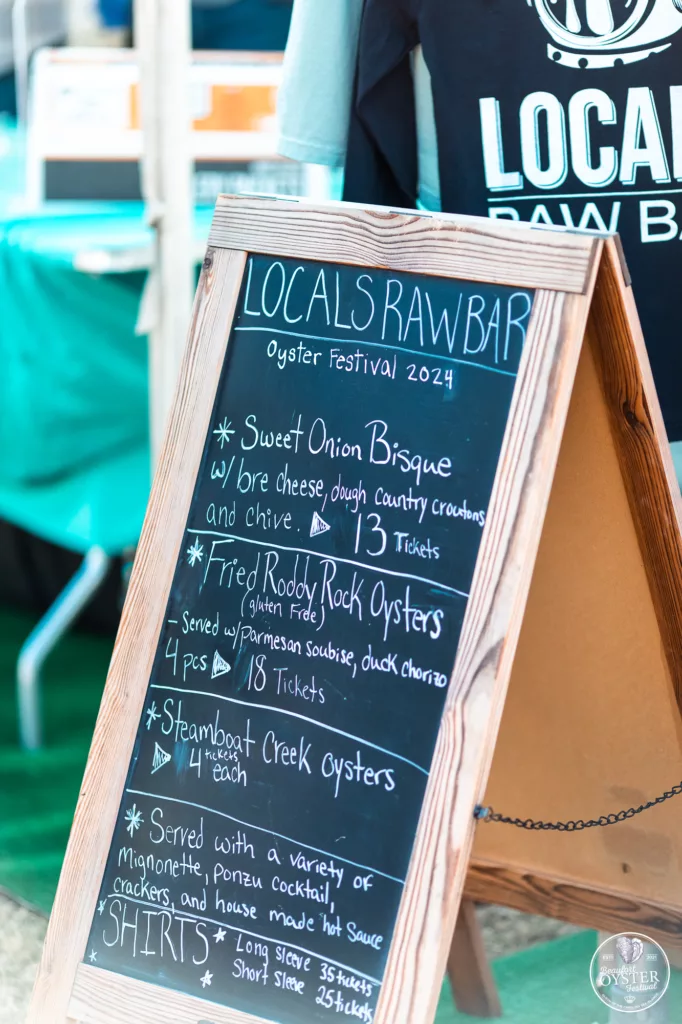 LOCAL
RAW BA
LOCALS RAW BAR
Oyster Festival 2024
* Sweet Onion Bisque
w/ bre cheese, dough country croutons
and chive. 13 Tickets
* Fried Roddy Rock Oysters
(gluten Free)
- Served w/parmesan soubise, duck chorizo
4 pcs 18 Tickets
* Steamboat Creek oysters
4 tickets each
* Served with a variety of
mignonette, ponzu cocktail,
crackers, and house made hot sauce
SHIRTS
Long sleeve 35tickets
Short sleeve 25tickets
Beaufort
OYSTER
Festival